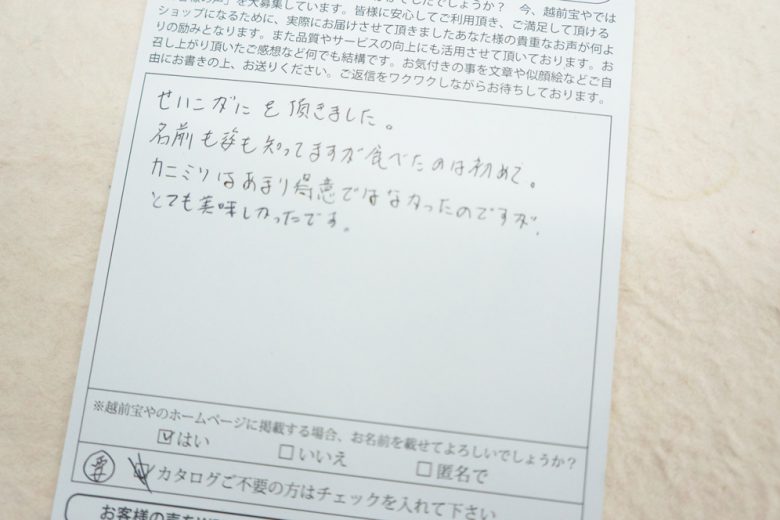 でしたでしょうか？ 今、越前宝やでは
の声」を大募集しています。皆様に安心してご利用頂き、ご満足して頂ける
ショップになるために、実際にお届けさせて頂きましたあなた様の貴重なお声が何よ
りの励みとなります。また品質やサービスの向上にも活用させて頂いております。お
召し上がり頂いたご感想など何でも結構です。お気付きの事を文章や似顔絵などご自
由にお書きの上、お送りください。ご返信をワクワクしながらお待ちしております。
せいこがにを頂きました。
名前も姿も知ってますが食べたのは初めて。
カニミソはあまり得意ではなかったのですが、
とても美味しかったです。
※越前宝やのホームページに掲載する場合、お名前を載せてよろしいでしょうか？
☑はい □いいえ □匿名で
カタログご不要の方はチェックを入れて下さい
お客様の声を